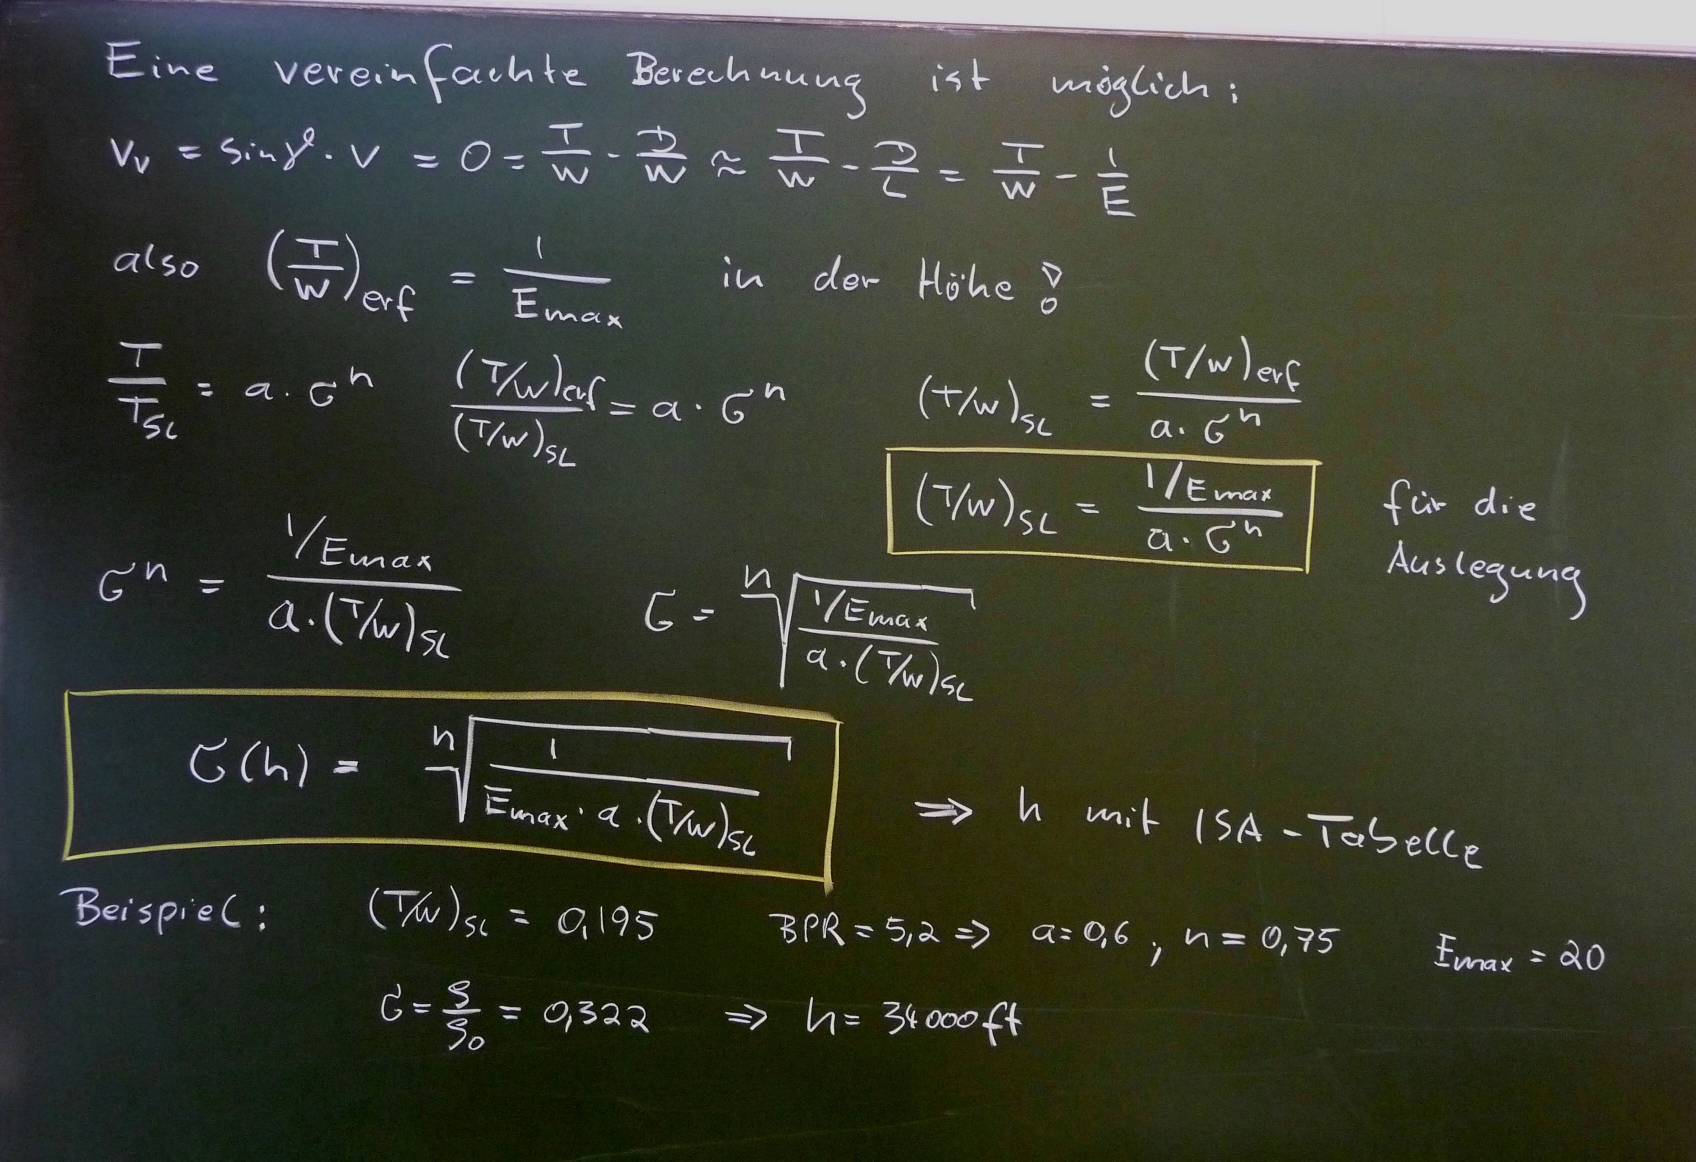 Eine vereinfachte Berechnung ist möglich:
V_V = sin γ · V = 0 = T/W - D/W ≈ T/W - D/L = T/W - 1/E
also (T/W)_erf = 1/E_max in der Höhe !
T/T_SL = a · σ^n (T/W)_erf/(T/W)_SL = a · σ^n (T/W)_SL = (T/W)_erf/(a · σ^n)
(T/W)_SL = (1/E_max)/(a · σ^n) für die Auslegung
σ^n = (1/E_max)/(a · (T/W)_SL) σ = ⁿ√((1/E_max)/(a · (T/W)_SL))
σ(h) = ⁿ√(1/(E_max · a · (T/W)_SL)) ⇒ h mit ISA-Tabelle
Beispiel: (T/W)_SL = 0,195 BPR = 5,2 ⇒ a = 0,6 , n = 0,75 E_max = 20
σ = ρ/ρ_0 = 0,322 ⇒ h = 34000 ft